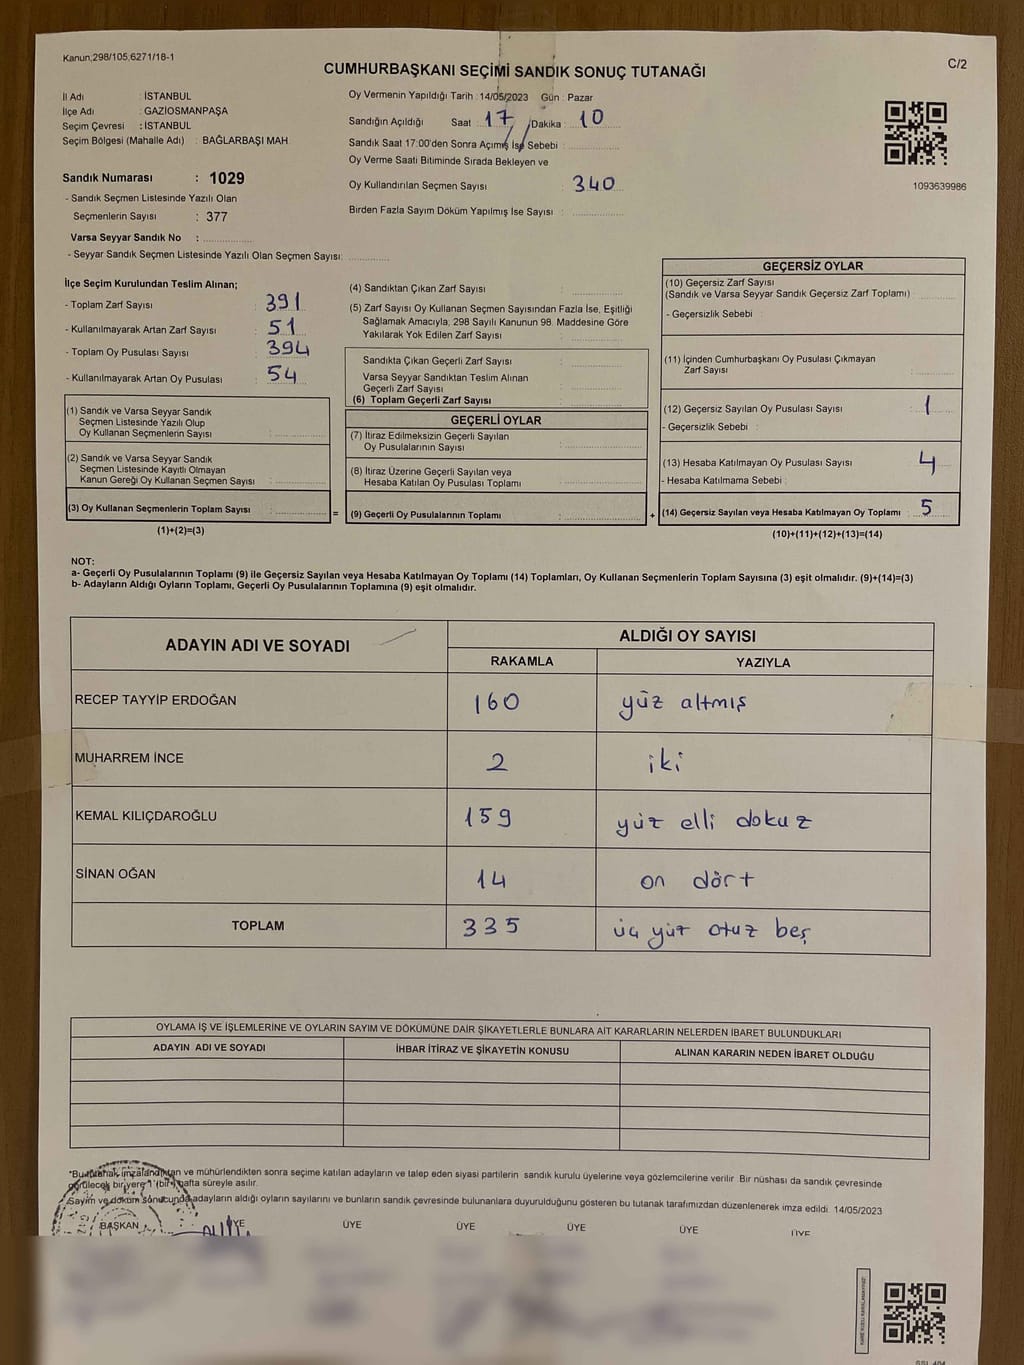 Kanun;298/105;6271/18-1
C/2
CUMHURBAŞKANI SEÇİMİ SANDIK SONUÇ TUTANAĞI
İl Adı : İSTANBUL
İlçe Adı : GAZİOSMANPAŞA
Seçim Çevresi : İSTANBUL
Seçim Bölgesi (Mahalle Adı) : BAĞLARBAŞI MAH
Sandık Numarası : 1029
- Sandık Seçmen Listesinde Yazılı Olan
Seçmenlerin Sayısı : 377
Varsa Seyyar Sandık No :
- Seyyar Sandık Seçmen Listesinde Yazılı Olan Seçmen Sayısı:
Oy Vermenin Yapıldığı Tarih : 14/05/2023 Gün : Pazar
Sandığın Açıldığı Saat : 17 Dakika : 10
Sandık Saat 17:00'den Sonra Açımış İse Sebebi :
Oy Verme Saati Bitiminde Sırada Bekleyen ve
Oy Kullandırılan Seçmen Sayısı : 340
Birden Fazla Sayım Döküm Yapılmış İse Sayısı :
1093639986
İlçe Seçim Kurulundan Teslim Alınan;
- Toplam Zarf Sayısı : 391
- Kullanılmayarak Artan Zarf Sayısı : 51
- Toplam Oy Pusulası Sayısı : 394
- Kullanılmayarak Artan Oy Pusulası : 54
(1) Sandık ve Varsa Seyyar Sandık
Seçmen Listesinde Yazılı Olup
Oy Kullanan Seçmenlerin Sayısı :
(2) Sandık ve Varsa Seyyar Sandık
Seçmen Listesinde Kayıtlı Olmayan
Kanun Gereği Oy Kullanan Seçmen Sayısı :
(3) Oy Kullanan Seçmenlerin Toplam Sayısı :
(1)+(2)=(3)
(4) Sandıktan Çıkan Zarf Sayısı :
(5) Zarf Sayısı Oy Kullanan Seçmen Sayısından Fazla İse, Eşitliği
Sağlamak Amacıyla, 298 Sayılı Kanunun 98. Maddesine Göre
Yakılarak Yok Edilen Zarf Sayısı :
Sandıkta Çıkan Geçerli Zarf Sayısı :
Varsa Seyyar Sandıktan Teslim Alınan
Geçerli Zarf Sayısı :
(6) Toplam Geçerli Zarf Sayısı :
GEÇERLİ OYLAR
(7) İtiraz Edilmeksizin Geçerli Sayılan
Oy Pusulalarının Sayısı :
(8) İtiraz Üzerine Geçerli Sayılan veya
Hesaba Katılan Oy Pusulası Toplamı :
= (9) Geçerli Oy Pusulalarının Toplamı :
GEÇERSİZ OYLAR
(10) Geçersiz Zarf Sayısı
(Sandık ve Varsa Seyyar Sandık Geçersiz Zarf Toplamı) :
- Geçersizlik Sebebi :
(11) İçinden Cumhurbaşkanı Oy Pusulası Çıkmayan
Zarf Sayısı :
(12) Geçersiz Sayılan Oy Pusulası Sayısı : 1
- Geçersizlik Sebebi :
(13) Hesaba Katılmayan Oy Pusulası Sayısı : 4
- Hesaba Katılmama Sebebi :
+ (14) Geçersiz Sayılan veya Hesaba Katılmayan Oy Toplamı : 5
(10)+(11)+(12)+(13)=(14)
NOT:
a- Geçerli Oy Pusulalarının Toplamı (9) ile Geçersiz Sayılan veya Hesaba Katılmayan Oy Toplamı (14) Toplamları, Oy Kullanan Seçmenlerin Toplam Sayısına (3) eşit olmalıdır. (9)+(14)=(3)
b- Adayların Aldığı Oyların Toplamı, Geçerli Oy Pusulalarının Toplamına (9) eşit olmalıdır.
ADAYIN ADI VE SOYADI ALDIĞI OY SAYISI
RAKAMLA YAZIYLA
RECEP TAYYİP ERDOĞAN 160 yüz altmış
MUHARREM İNCE 2 iki
KEMAL KILIÇDAROĞLU 159 yüz elli dokuz
SİNAN OĞAN 14 on dört
TOPLAM 335 üç yüz otuz beş
OYLAMA İŞ VE İŞLEMLERİNE VE OYLARIN SAYIM VE DÖKÜMÜNE DAİR ŞİKAYETLERLE BUNLARA AİT KARARLARIN NELERDEN İBARET BULUNDUKLARI
ADAYIN ADI VE SOYADI İHBAR İTİRAZ VE ŞİKAYETİN KONUSU ALINAN KARARIN NEDEN İBARET OLDUĞU
*Bu tutanak imzalandıktan ve mühürlendikten sonra seçime katılan adayların ve talep eden siyasi partilerin sandık kurulu üyelerine veya gözlemcilerine verilir. Bir nüshası da sandık çevresinde
görülecek bir yere 1 (bir) hafta süreyle asılır.
Sayım ve döküm sonucunda adayların aldığı oyların sayılarını ve bunların sandık çevresinde bulunanlara duyurulduğunu gösteren bu tutanak tarafımızdan düzenlenerek imza edildi. 14/05/2023
BAŞKAN ÜYE ÜYE ÜYE ÜYE ÜYE ÜYE